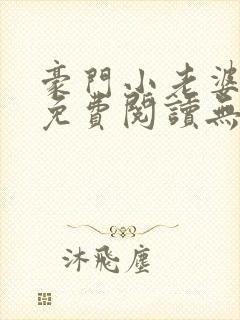 豪門小老婆
免費閱讀無
沐飛塵